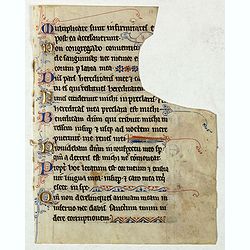 Multiplicate sunt infirmitates e
postea accelerauerunt
Non congregabo conuenticu
de sanguinibus nec memor e
eorum per labia mea
Dns pars hereditatis mee et ca
es qui restitues hereditatem
Funes ceciderunt michi in preclar
hereditas mea preclara est michi
Benedicam dnm qui tribuit michi in
insuper et usque ad noctem incre
puerunt me renes mei
Prouidebam dnm in conspectu meo
a dextris est michi ne commouear
Propter hoc letatum est cor meum et exulta
lingua mea insuper et caro mea req
escet in spe
Qm non derelinques animam meam in
inferno nec dabis sanctum tuum ui
dere corruptionem